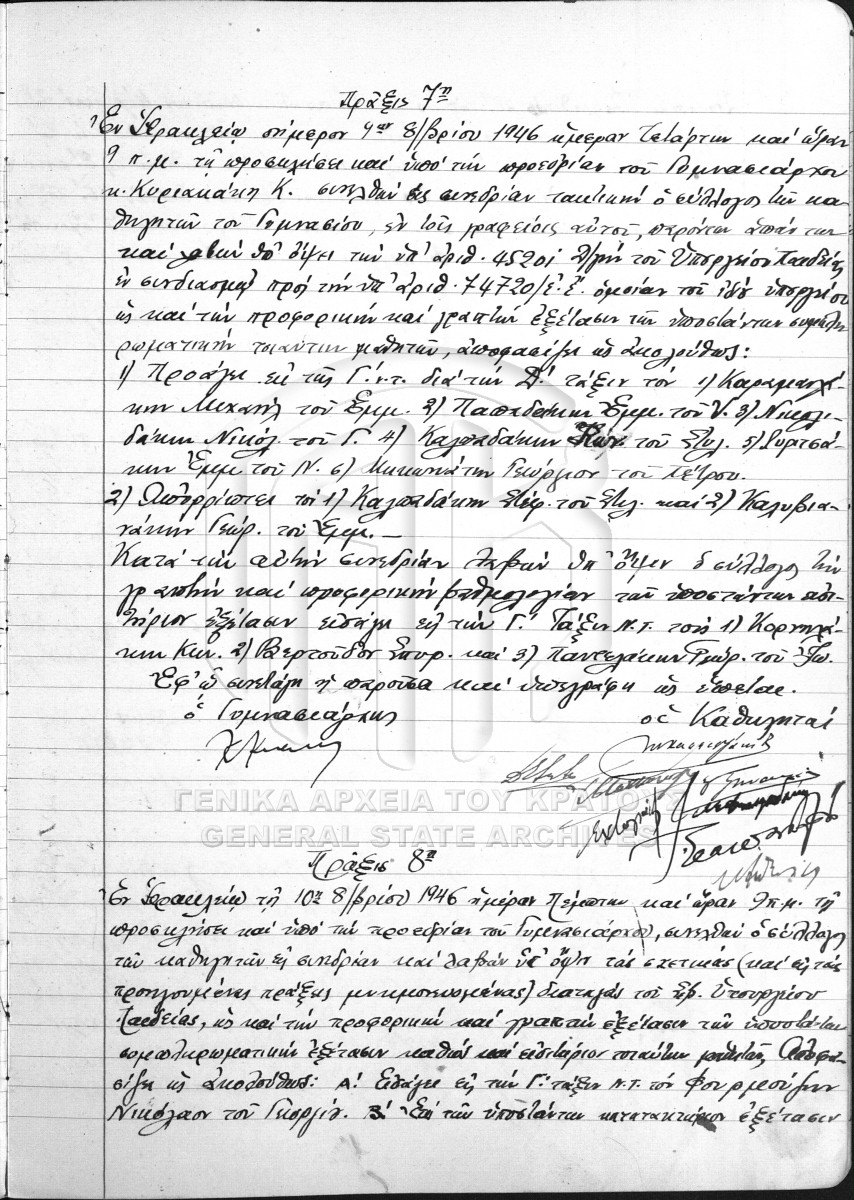 Πρᾶξις 7η
Ἐν Ἡρακλείῳ σήμερον 9ην 8/βρίου 1946 ἡμέραν Τετάρτην καὶ ὥραν
9 π.μ. τῇ προσκλήσει καὶ ὑπὸ τὴν προεδρίαν τοῦ Γυμνασιάρχου
κ. Κυριακάκη Κ. συνελθὼν εἰς συνεδρίαν τακτικὴν ὁ σύλλογος τῶν κα-
θηγητῶν τοῦ Γυμνασίου, ἐν τοῖς γραφείοις αὐτοῦ, παρόντων ἁπάντων
καὶ λαβὼν ὑπ' ὄψει τὴν ὑπ' ἀριθ. 45201 Δ/γὴν τοῦ Ὑπουργείου Παιδείας
ἐν συνδιασμῷ πρὸς τὴν ὑπ' ἀριθ. 74720/ε.ἔ. ὁμοίαν τοῦ ἰδίου ὑπουργείου
ὡς καὶ τὴν προφορικὴν καὶ γραπτὴν ἐξέτασιν τῶν ὑποστάντων συμπλη-
ρωματικὴν τοιαύτην μαθητῶν, ἀποφασίζει ὡς ἀκολούθως:
1) Προάγει ἐκ τῆς Γ. ν.τ. διὰ τὴν Δ! τάξιν τὸν 1) Καραμανλά-
κην Μιχαὴλ τοῦ Ἐμμ. 2) Παπαδάκην Ἐμμ. τοῦ Ν. 3) Νικολι-
δάκην Νικόλ. τοῦ Γ. 4) Καλπαδάκην Κων. τοῦ Στυλ. 5) Συρτσά-
κην Ἐμμ τοῦ Ν. 6) Μυκωνιάτην Γεώργιον τοῦ Πέτρου.
2) Ἀπορρίπτει τοὺς 1) Καλπαδάκην Στέφ. τοῦ Στυλ. καὶ 2) Καλυβια-
νάκην Γεώρ. τοῦ Ἐμμ. —
Κατὰ τὴν αὐτὴν συνεδρίαν λαβὼν ὑπ' ὄψιν ὁ σύλλογος τὴν
γραπτὴν καὶ προφορικὴν βαθμολογίαν τῶν ὑποστάντων εἰσι-
τήριον ἐξέτασιν εἰσάγει εἰς τὴν Γ! Τάξιν Ν.Τ. τοὺς 1) Κορνηλά-
κην Κων. 2) Βερτούδον Σπυρ. καὶ 3) Παντελάκην Γεώρ. τοῦ Ἰω.
Ἐφ' ᾧ συνετάγη ἡ παροῦσα καὶ ὑπεγράφη ὡς ἕπεται.
ὁ Γυμνασιάρχης οἱ Καθηγηταὶ
ΓΕΝΙΚΑ ΑΡΧΕΙΑ ΤΟΥ ΚΡΑΤΟΥΣ
GENERAL STATE ARCHIVES
Πρᾶξις 8η
Ἐν Ἡρακλείῳ τῇ 10ῃ 8/βρίου 1946 ἡμέραν Πέμπτην καὶ ὥραν 9 π.μ. τῇ
προσκλήσει καὶ ὑπὸ τὴν προεδρίαν τοῦ Γυμνασιάρχου, συνελθὼν ὁ σύλλογος
τῶν καθηγητῶν εἰς συνεδρίαν καὶ λαβὼν ὑπ' ὄψιν τὰς σχετικὰς (καὶ εἰς τὰς
προηγουμένας πράξεις μνημονευομένας) διαταγὰς τοῦ Σεβ. Ὑπουργείου
Παιδείας, ὡς καὶ τὴν προφορικὴν καὶ γραπτὴν ἐξέτασιν τῶν ὑποστάντων
συμπληρωματικὴν ἐξέτασιν καθὼς καὶ εἰσιτήριον τοιαύτην μαθητῶν Ἀποφα-
σίζει ὡς ἀκολούθως: Α! Εἰσάγει εἰς τὴν Γ! τάξιν Ν.Τ. τὸν Φουρμούζην
Νικόλαον τοῦ Γεωργίου. Β! Ἐκ τῶν ὑποστάντων κατατακτήριον ἐξέτασιν